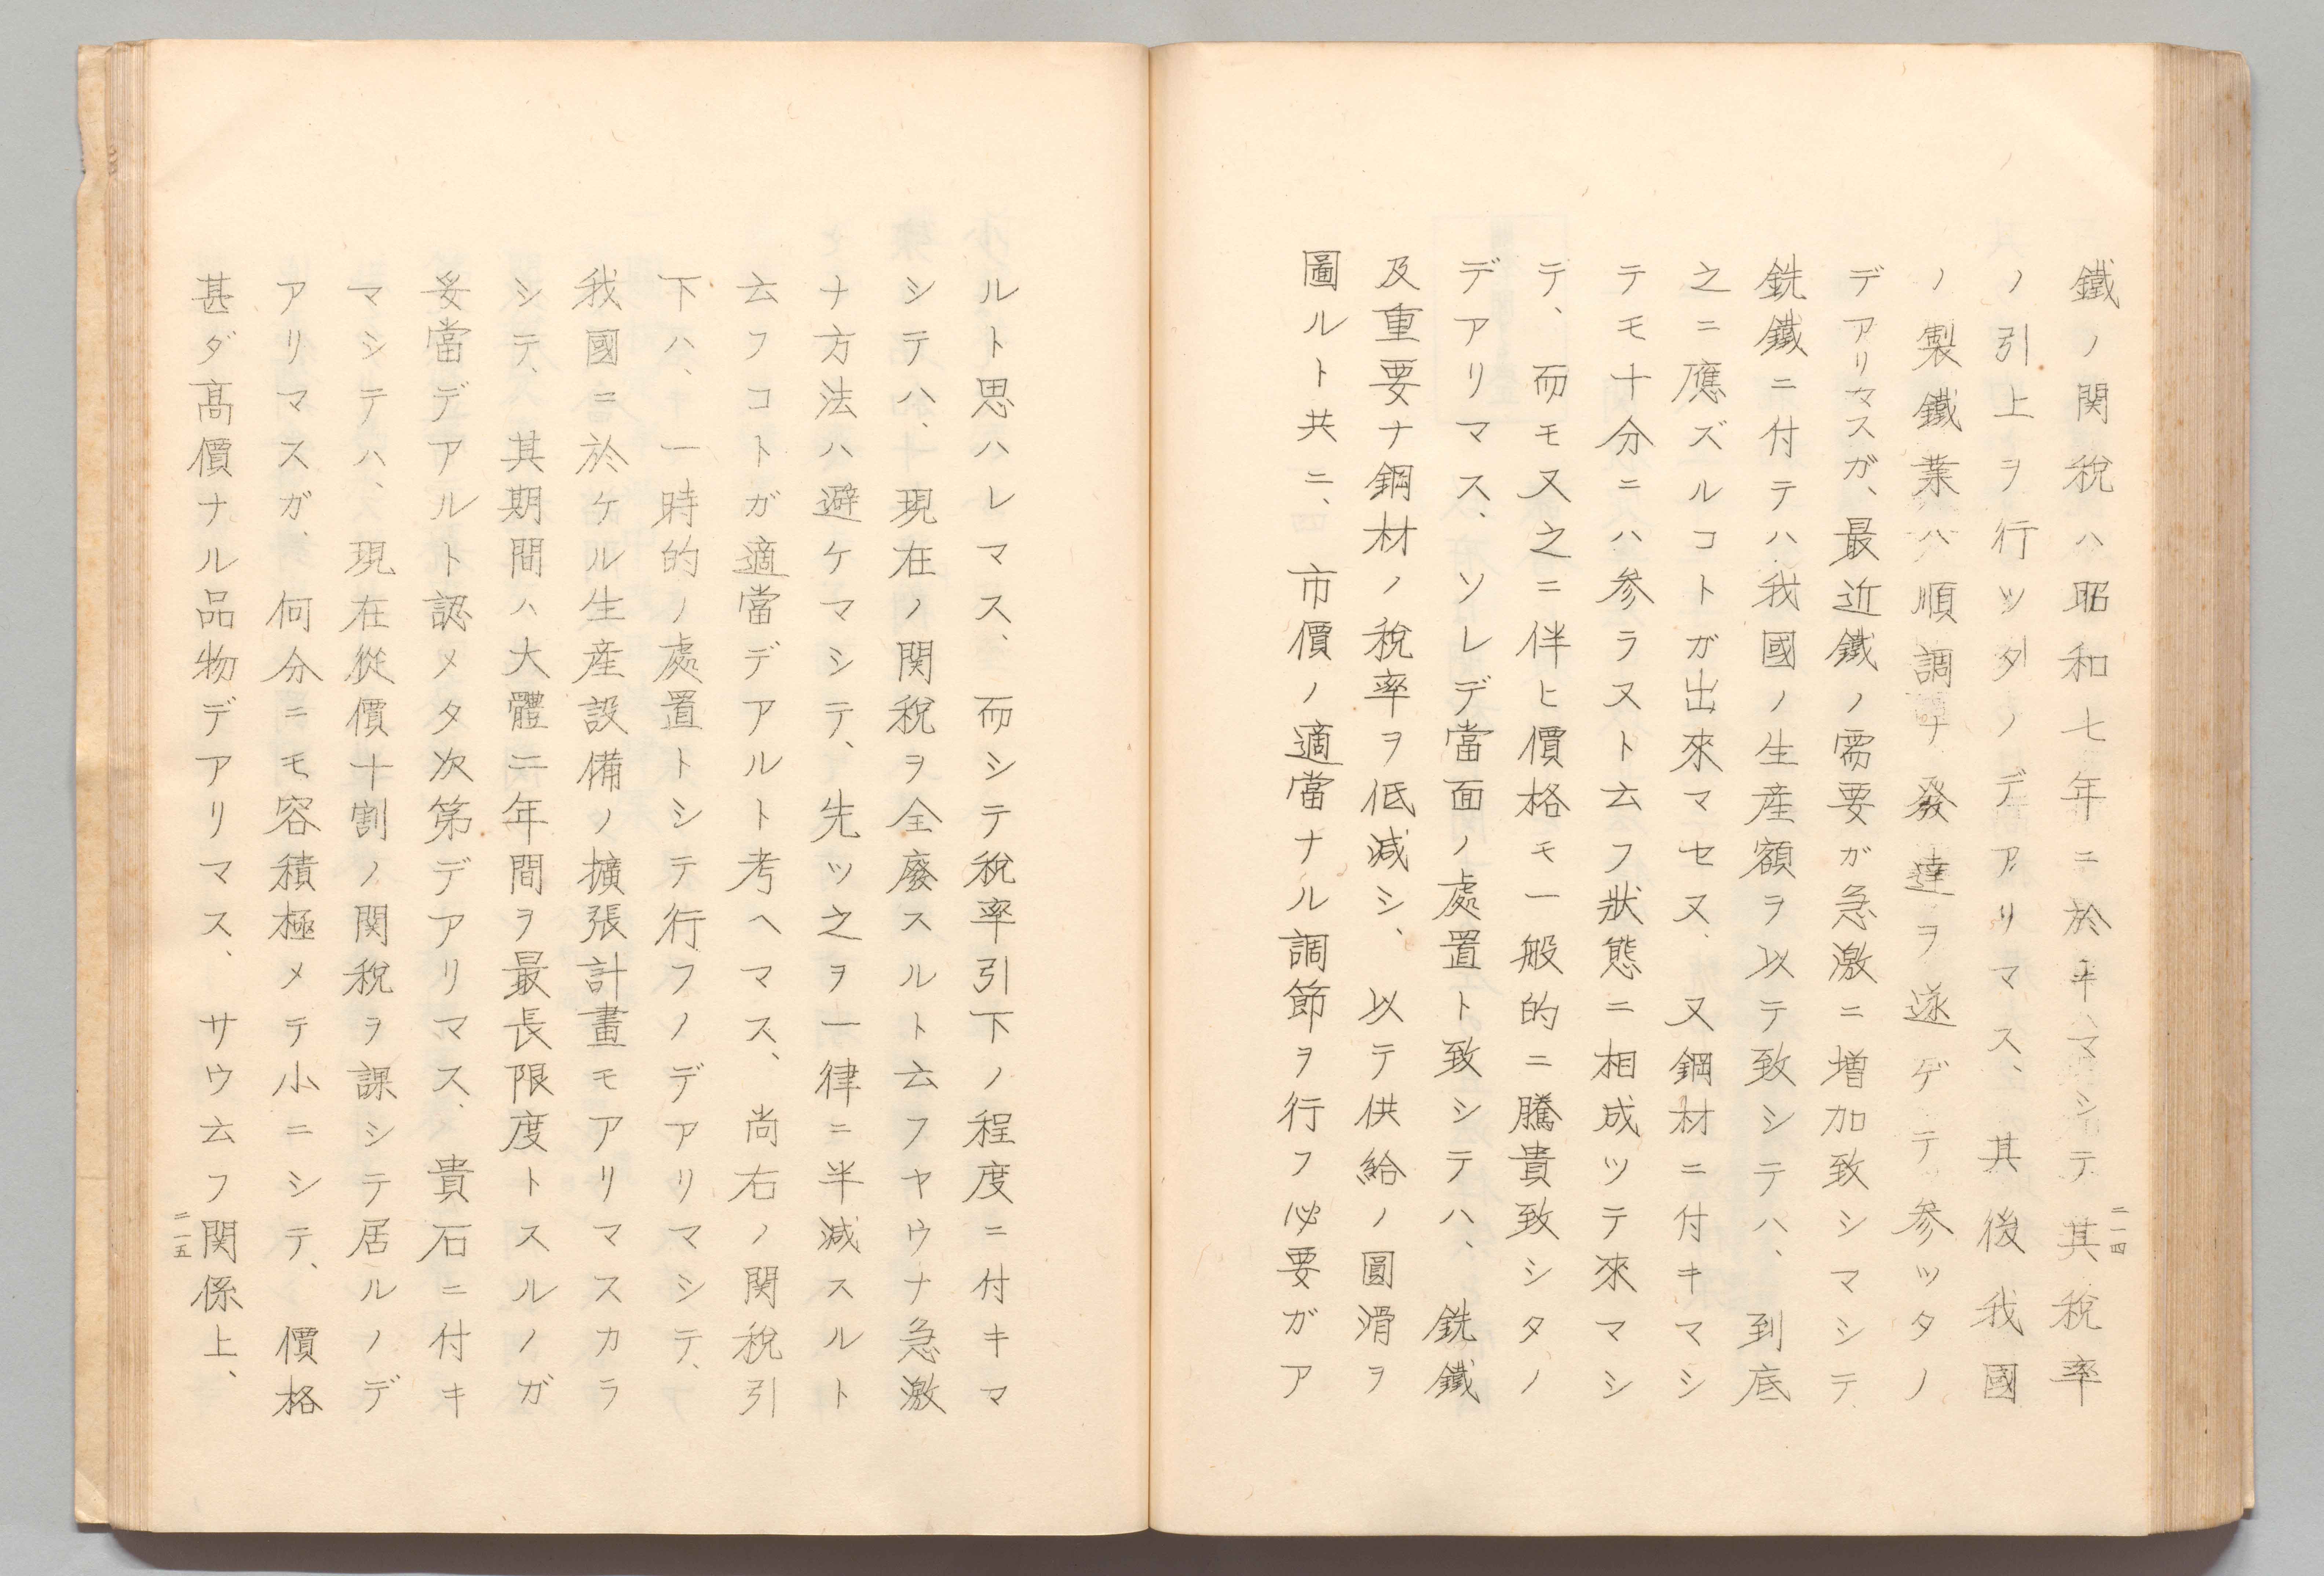 鐵ノ関税ハ昭和七年ニ於キマシテ其税率
ノ引上ヲ行ツタノデアリマス、其後我國
ノ製鐵業ハ順調ナ發達ヲ遂ゲテ参ッタノ
デアリマスガ、最近鐵ノ需要ガ急激ニ増加致シマシテ
銑鐵ニ付テハ我國ノ生産額ヲ以テ致シテハ、到底
之ニ應ズルコトガ出來マセヌ、又鋼材ニ付キマシ
テモ十分ニハ参ラヌト云フ狀態ニ相成ツテ來マシ
テ、而モ又之ニ伴ヒ價格モ一般的ニ騰貴致シタノ
デアリマス、ソレデ當面ノ處置ト致シテハ、銑鐵
及重要ナ鋼材ノ税率ヲ低減シ、以テ供給ノ圓滑ヲ
圖ルト共ニ、市價ノ適當ナル調節ヲ行フ必要ガア
二一四
ルト思ハレマス、而シテ税率引下ノ程度ニ付キマ
シテハ、現在ノ関税ヲ全廢スルト云フヤウナ急激
ナ方法ハ避ケマシテ、先ツ之ヲ一律ニ半減スルト
云フコトガ適當デアルト考ヘマス、尚右ノ関税引
下ハ、一時的ノ處置トシテ行フノデアリマシテ、
我國ニ於ケル生産設備ノ擴張計畫モアリマスカラ
シテ、其期間ハ大體二年間ヲ最長限度トスルノガ
妥當デアルト認メタ次第デアリマス、貴石ニ付キ
マシテハ、現在從價十割ノ関税ヲ課シテ居ルノデ
アリマスガ、何分ニモ容積極メテ小ニシテ、價格
甚ダ高價ナル品物デアリマス、サウ云フ関係上、
二一五